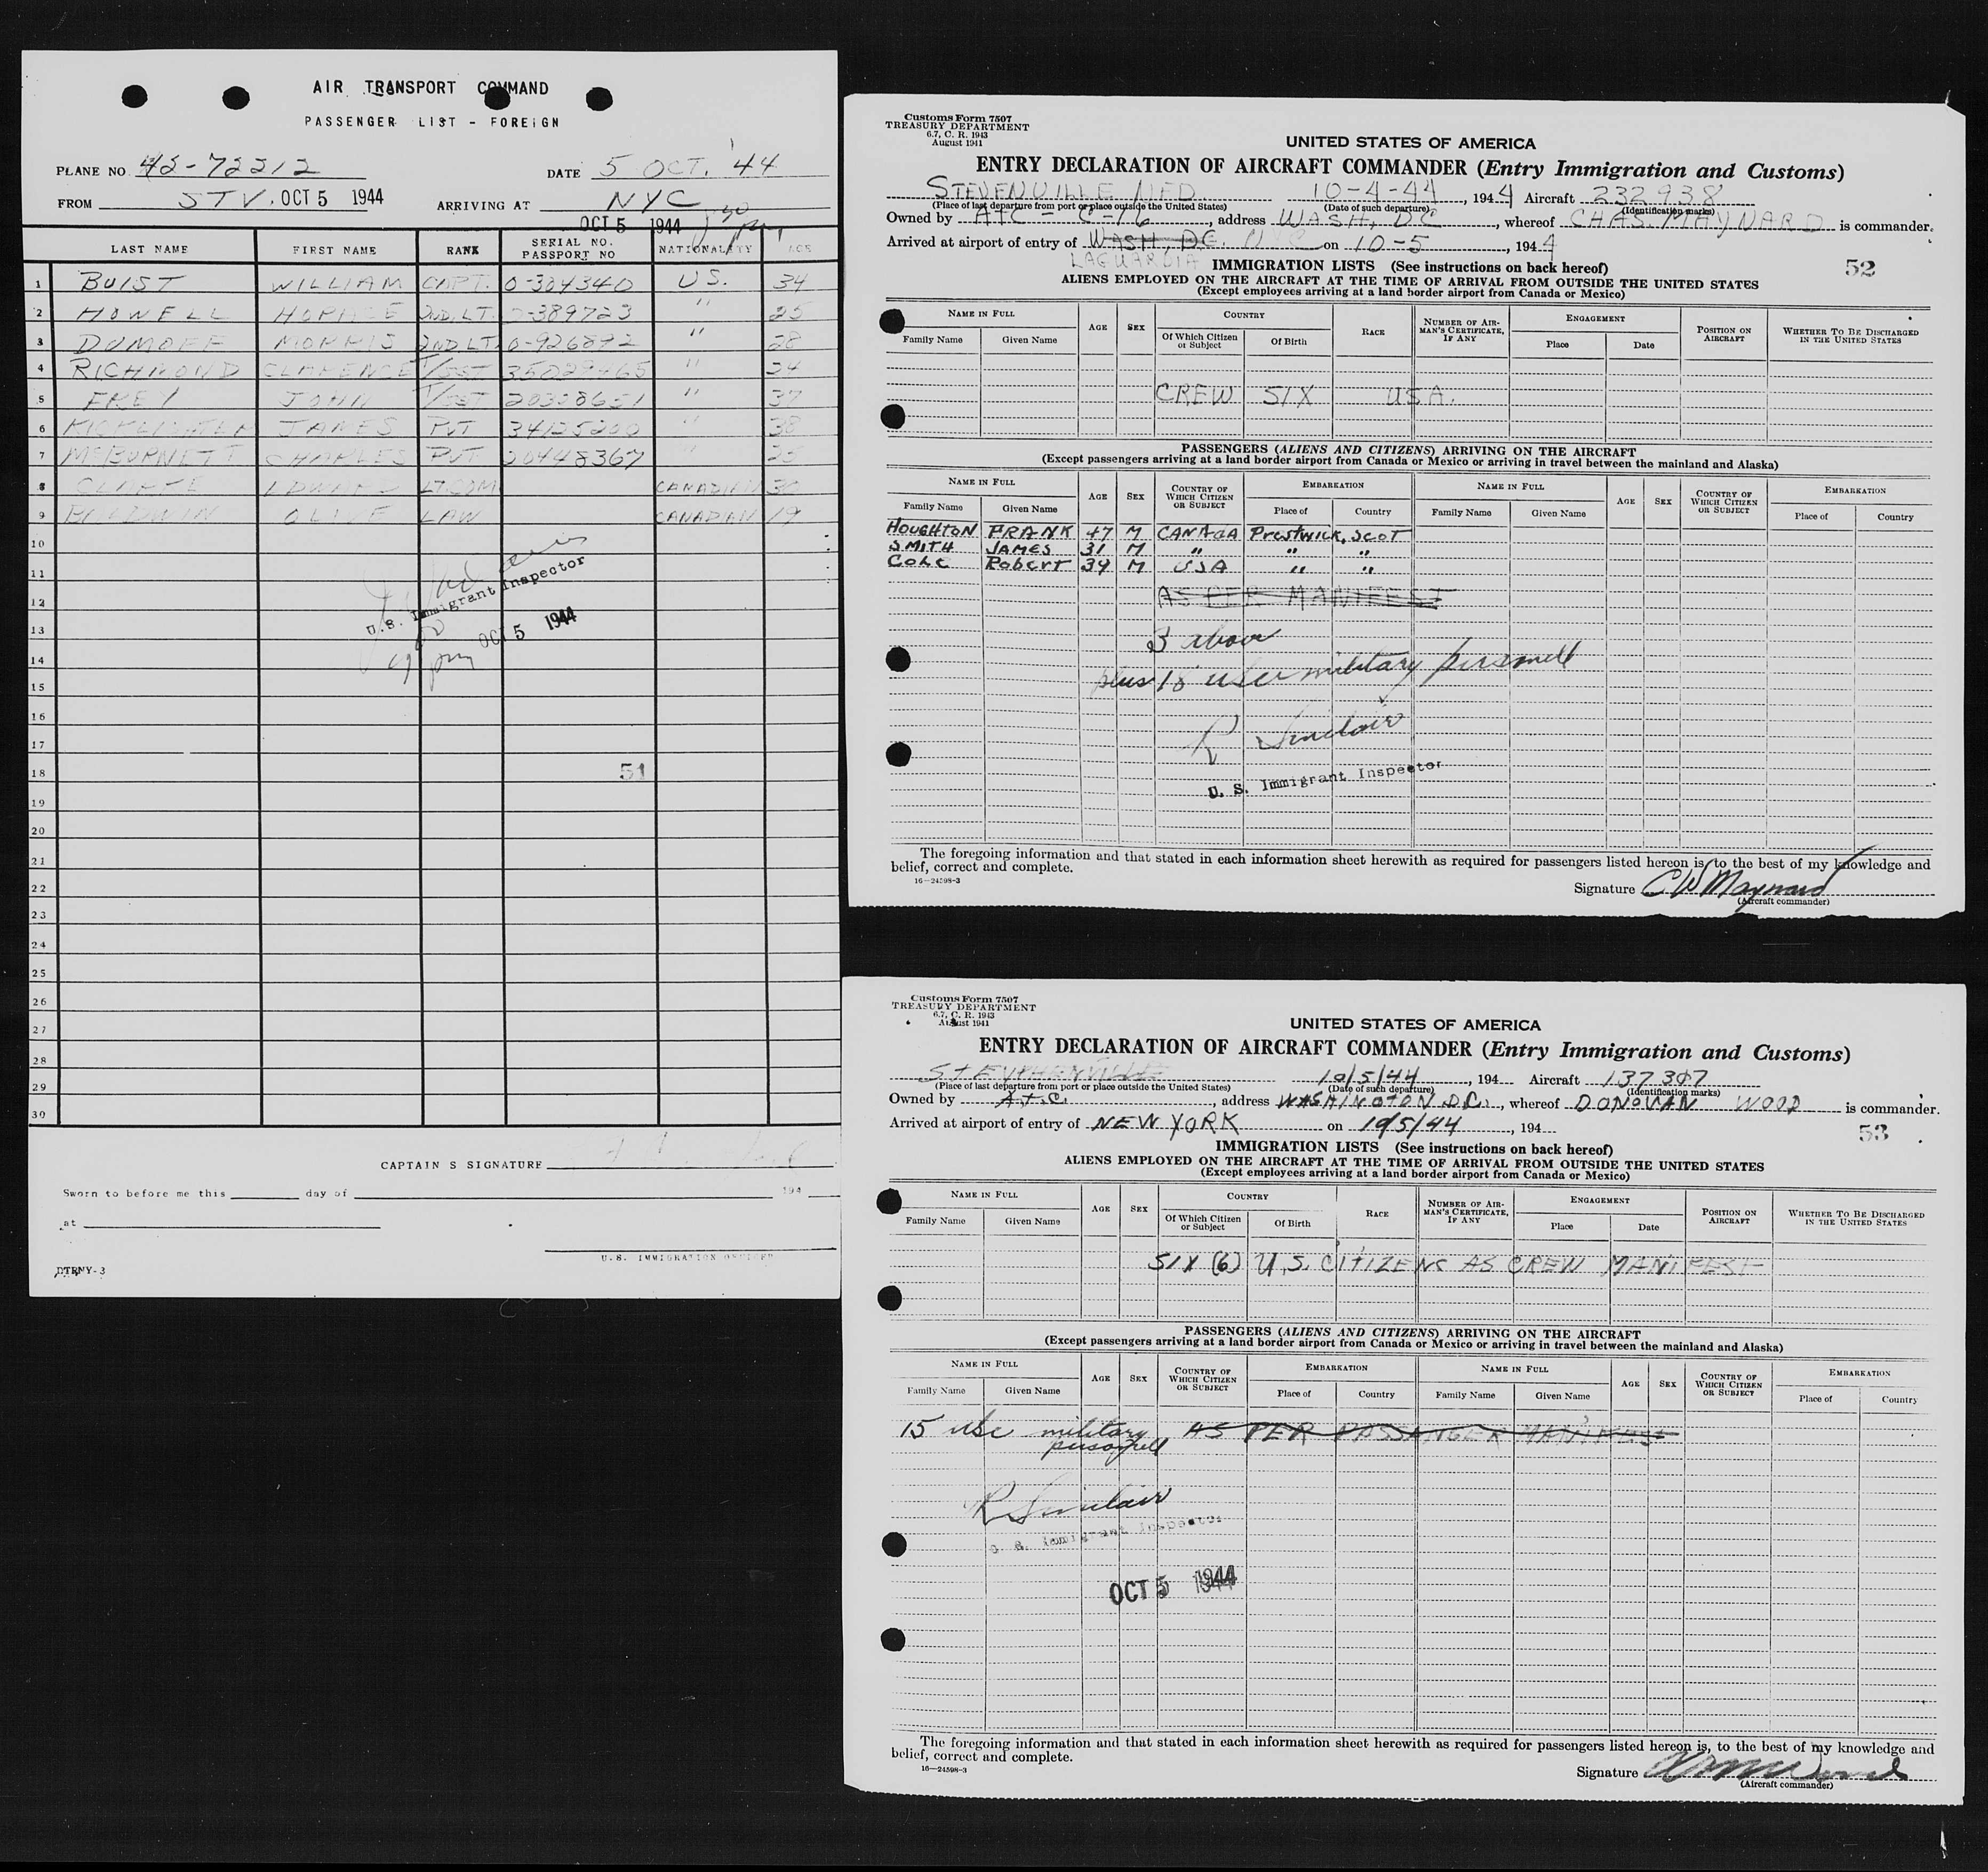 AIR TRANSPORT COMMAND
PASSENGER LIST - FOREIGN
PLANE NO 42-72212 DATE 5 OCT. '44
FROM STV. OCT 5 1944 ARRIVING AT NYC
OCT 5 1944
LAST NAME FIRST NAME RANK SERIAL NO. PASSPORT NO NATIONALITY AGE
1 BUIST WILLIAM CAPT. O-304340 U.S. 34
2 HOWELL HORACE 2ND. LT. O-389723 " 25
3 DUMOFF MORRIS 2ND LT. O-926892 " 28
4 RICHMOND CLARENCE T/SGT 35029465 " 34
5 FREI JOHN T/SGT 20308651 " 37
6 JAMES PVT 34125200 " 38
7 McBURNETT CHARLES PVT 20448367 " 25
8 EDWARD LT.COM CANADIAN 30
9 BALDWIN OLIVE LAW CANADIAN 19
10
11
U.S. Immigrant Inspector
12
13
OCT 5 1944
14
15
16
17
18 51
19
20
21
22
23
24
25
26
27
28
29
30
CAPTAIN S SIGNATURE
Sworn to before me this day of 194
at
U.S. IMMIGRATION OFFICER
DTRNY-3
Customs Form 7507
TREASURY DEPARTMENT
6.7, C. R. 1943
August 1941
UNITED STATES OF AMERICA
ENTRY DECLARATION OF AIRCRAFT COMMANDER (Entry Immigration and Customs)
STEVENVILLE NFD 10-4-44, 1944 Aircraft 232938
(Place of last departure from port or place outside the United States) (Date of such departure) (Identification marks)
Owned by ATC - C-16, address WASH, DC, whereof CHAS. MAYNARD is commander.
Arrived at airport of entry of WASH, DC. on 10-5, 1944
LAGUARDIA
52
IMMIGRATION LISTS (See instructions on back hereof)
ALIENS EMPLOYED ON THE AIRCRAFT AT THE TIME OF ARRIVAL FROM OUTSIDE THE UNITED STATES
(Except employees arriving at a land border airport from Canada or Mexico)
NAME IN FULL AGE SEX COUNTRY RACE NUMBER OF AIRMAN'S CERTIFICATE, IF ANY ENGAGEMENT POSITION ON AIRCRAFT WHETHER TO BE DISCHARGED IN THE UNITED STATES
Family Name Given Name Of Which Citizen or Subject Of Birth Place Date
CREW SIX USA.
PASSENGERS (ALIENS AND CITIZENS) ARRIVING ON THE AIRCRAFT
(Except passengers arriving at a land border airport from Canada or Mexico or arriving in travel between the mainland and Alaska)
NAME IN FULL AGE SEX COUNTRY OF WHICH CITIZEN OR SUBJECT EMBARKATION NAME IN FULL AGE SEX COUNTRY OF WHICH CITIZEN OR SUBJECT EMBARKATION
Family Name Given Name Place of Country Family Name Given Name Place of Country
HOUGHTON FRANK 47 M CANADA Prestwick, SCOT
SMITH JAMES 31 M " " "
Cole Robert 39 M USA " "
AS PER MANIFEST
3 above
plus 18 military personnell
R Sinclair
U. S. Immigrant Inspector
The foregoing information and that stated in each information sheet herewith as required for passengers listed hereon is, to the best of my knowledge and
belief, correct and complete.
16—24598-3
Signature C W Maynard
(Aircraft commander)
Customs Form 7507
TREASURY DEPARTMENT
6.7, C. R. 1943
August 1941
UNITED STATES OF AMERICA
ENTRY DECLARATION OF AIRCRAFT COMMANDER (Entry Immigration and Customs)
STEVPHENVILLE 10/5/44, 194 Aircraft 137307
(Place of last departure from port or place outside the United States) (Date of such departure) (Identification marks)
Owned by A.T.C., address WASHINGTON D.C., whereof DONOVAN WOOD is commander.
Arrived at airport of entry of NEW YORK on 10/5/44, 194
53
IMMIGRATION LISTS (See instructions on back hereof)
ALIENS EMPLOYED ON THE AIRCRAFT AT THE TIME OF ARRIVAL FROM OUTSIDE THE UNITED STATES
(Except employees arriving at a land border airport from Canada or Mexico)
NAME IN FULL AGE SEX COUNTRY RACE NUMBER OF AIRMAN'S CERTIFICATE, IF ANY ENGAGEMENT POSITION ON AIRCRAFT WHETHER TO BE DISCHARGED IN THE UNITED STATES
Family Name Given Name Of Which Citizen or Subject Of Birth Place Date
SIX (6) U.S. CITIZENS AS CREW MANIFEST
PASSENGERS (ALIENS AND CITIZENS) ARRIVING ON THE AIRCRAFT
(Except passengers arriving at a land border airport from Canada or Mexico or arriving in travel between the mainland and Alaska)
NAME IN FULL AGE SEX COUNTRY OF WHICH CITIZEN OR SUBJECT EMBARKATION NAME IN FULL AGE SEX COUNTRY OF WHICH CITIZEN OR SUBJECT EMBARKATION
Family Name Given Name Place of Country Family Name Given Name Place of Country
15 usc military AS PER PASSANGER MANIFEST
personnell
R Sinclair
U. S. Immigrant Inspector
OCT 5 1944
The foregoing information and that stated in each information sheet herewith as required for passengers listed hereon is, to the best of my knowledge and
belief, correct and complete.
16—24598-3
Signature
(Aircraft commander)